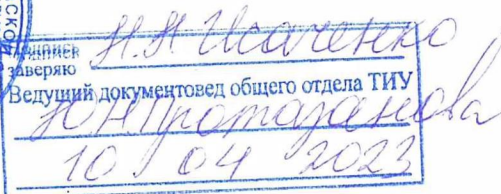 СКОЙ
Подпись Н.Н Исаченко
заверяю
Ведущий документовед общего отдела ТИУ
Ю.Н.Протазанова
10 04 2023